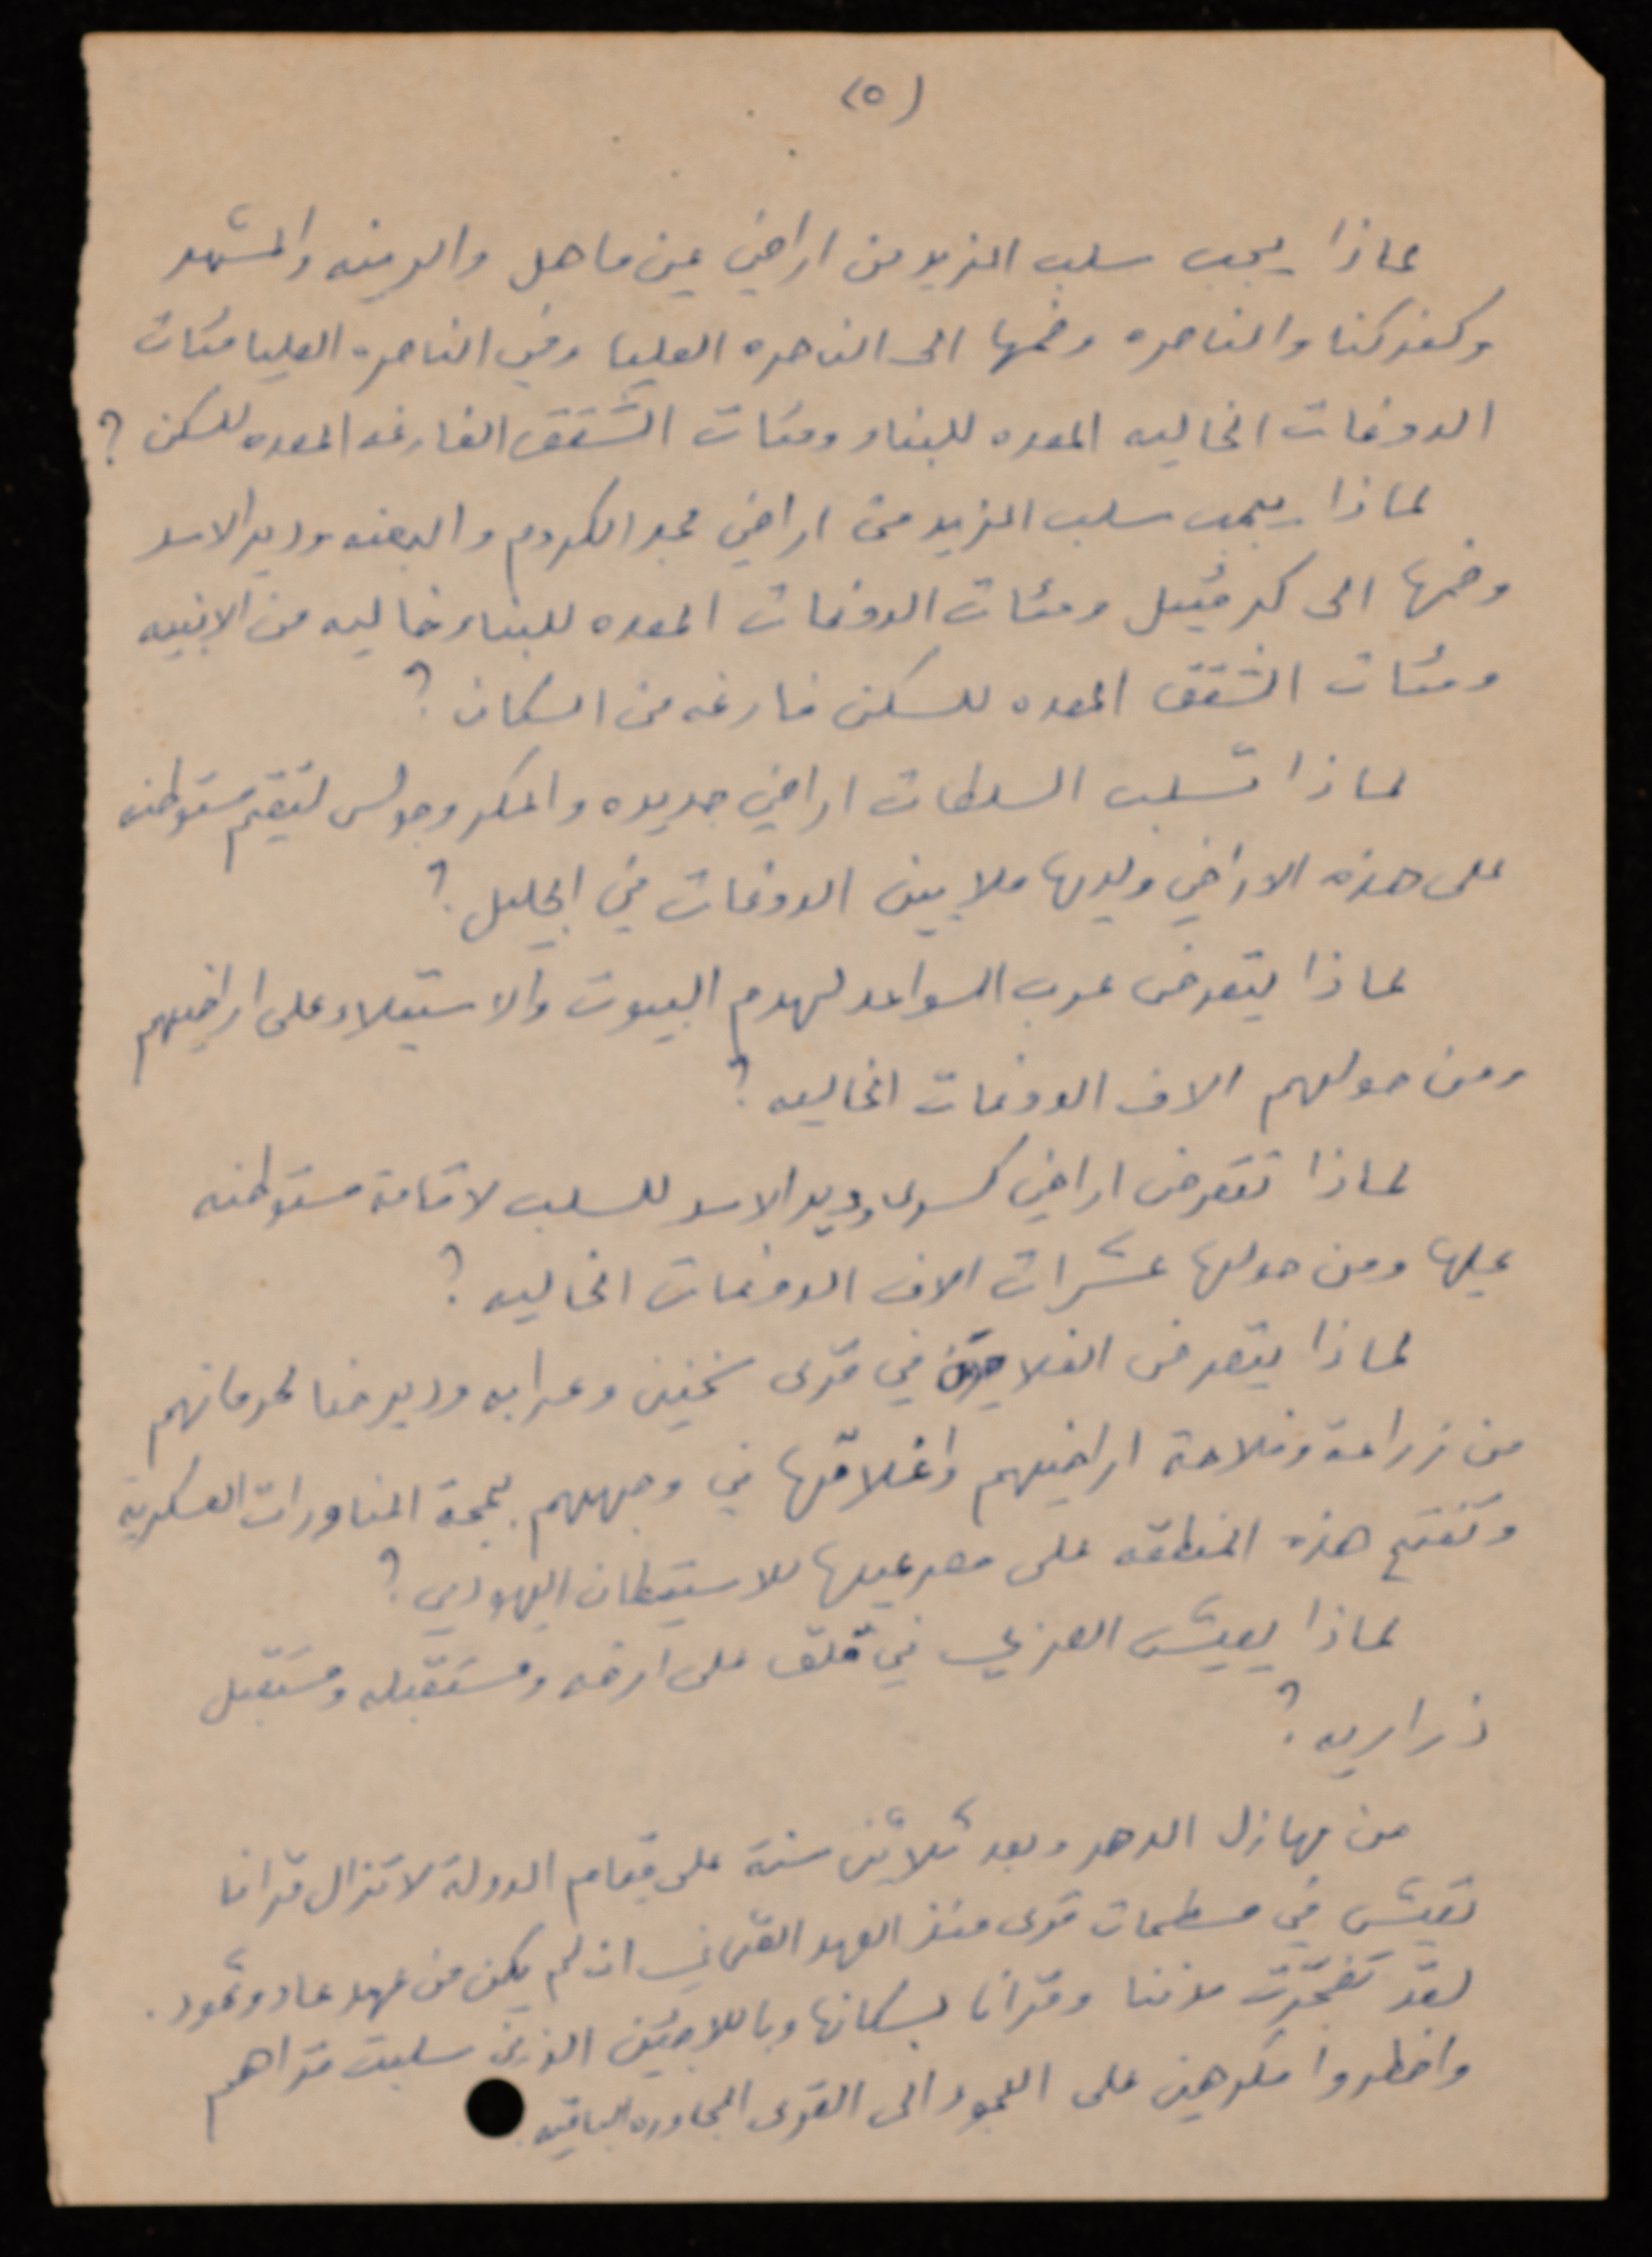 (٥)
لماذا يجب سلب المزيد من اراضي عين ماهل والرينه والمشهد
وكفركنا والناصره وضمها الى الناصره العليا وفي الناصره العليا مئات
الدونمات الخاليه المعده للبناء ومئات الشقق الفارغه المعده للسكن ؟
لماذا يجب سلب المزيد من اراضي مجد الكروم والبعنه ودير الاسد
وضمها الى كرميئيل ومئات الدونمات المعده للبناء خاليه من الابنيه
ومئات الشقق المعده للسكن فارغه من السكان ؟
لماذا تسلب السلطات اراضي جديده والمكر وجولس لتقيم مستوطنه
على هذه الاراضي ولديها ملايين الدونمات في الجليل ؟
لماذا يتعرض عرب السواعد لهدم البيوت والاستيلاء على اراضيهم
ومن حولهم الاف الدونمات الخاليه ؟
لماذا تتعرض اراضي كسرى ودير الاسد للسلب لاقامة مستوطنه
عليها ومن حولها عشرات الاف الدونمات الخاليه ؟
لماذا يتعرض الفلاحون في قرى سخنين وعرابه ودير حنا لحرمانهم
من زراعة وفلاحة اراضيهم واغلاقها في وجههم بحجة المناورات العسكرية
وتفتح هذه المنطقه على مصرعيها للاستيطان اليهودي ؟
لماذا يعيش العربي في قلق على ارضه ومستقبله ومستقبل
ذراريه ؟
من مهازل الدهر وبعد ثلاثين سنة على قيام الدولة لا تزال قرانا
تعيش في مسطحات قرى منذ العهد العثماني ان لم يكن من عهد عاد وثمود .
لقد تفجّرت مدننا وقرانا بسكانها وباللاجئين الذين سلبت قراهم
واضطروا مكرهين على اللجوء الى القرى المجاوره الباقيه .